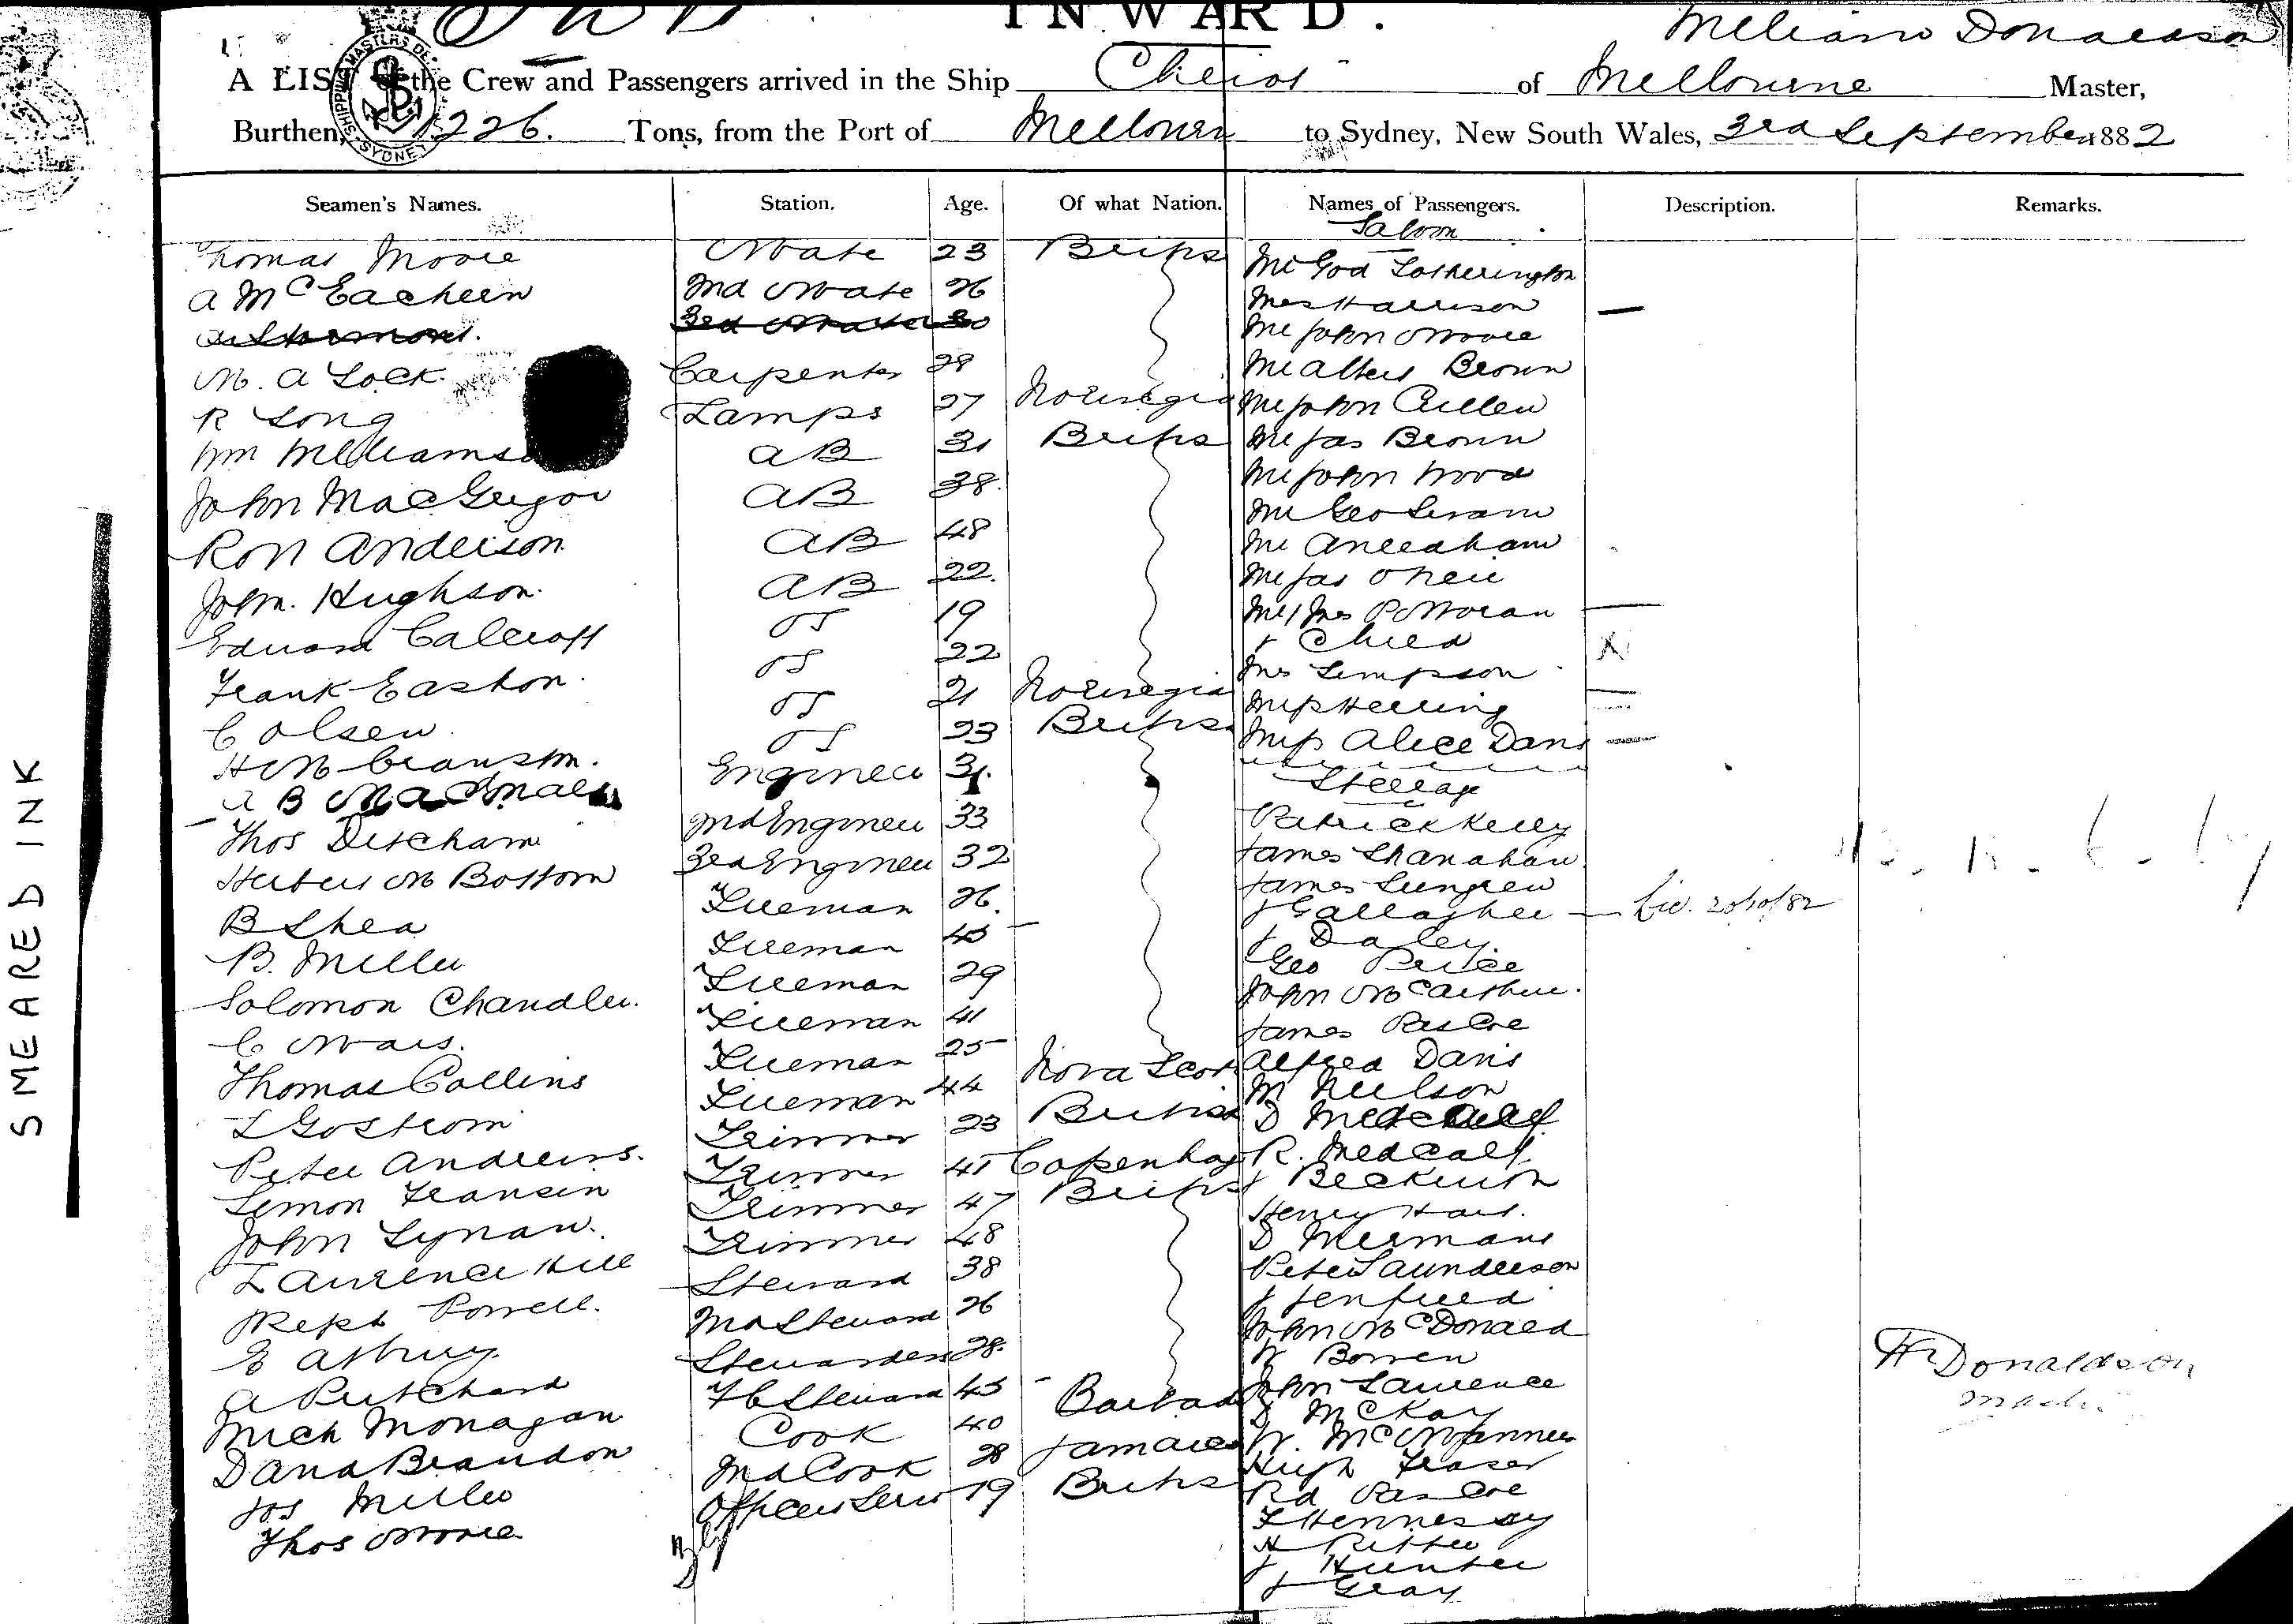 INWARD.
William Donaldson
A LIST of the Crew and Passengers arrived in the Ship Cheviot of Melbourne Master,
Burthen, 1226. Tons, from the Port of Melbourne to Sydney, New South Wales, 3rd September 1882
SHIPPING MASTERS DE
SYDNEY
Seamen's Names. Station. Age. Of what Nation. Names of Passengers. Description. Remarks.
Saloon
Thomas Moore Mate 23 British
A McEachern 2nd Mate 26 Mrs Harrison
3rd Mate 30 Mr John Moore
M. A Lock Carpenter 28 Mr Albert Brown
R Long Lamps 27 Norwegia Mr John Cullen
Wm Williamso AB 31 British Mr Jas Brown
John MacGregor AB 38 Mr John Wood
Ron Anderson AB 48 Mr Geo
John Hughson. AB 22 Mr A Needham
Edward Calcroft OS 19 Mr Jas O'Neil
Frank Easton. OS 22 Mr & Mrs P Moran
& Child X
C Olsen OS 21 Norwegia Mrs Simpson
H M Cranston. OS 23 British Miss Herring
A B MacDonald Engineer 31 Miss Alice Davis
Steerage
Thos Detcham 2nd Engineer 33 Patrick Kelly
Herbert M Bottom 3rd Engineer 32 James Shanahan
B Shea Fireman 26. James
B. Miller Fireman 45 J Gallagher Liv. 20/10/82
Solomon Chandler. Fireman 29 J Daley.
C Mars. Fireman 41 Geo Price
Thomas Collins Fireman 25 John McArthur.
L Gostrom Fireman 44 Nova Scot James Pascoe
Peter Andrews. Trimmer 23 British Alfred Davis
Simon Fransen Trimmer 45 Copenhag M Neilson
John Lynan. Trimmer 47 British D Medcalf
Laurence Hill Trimmer 48 R. Medcalf
Powell. Steward 38 J
E Asbury. 2nd Steward 26 Henry Hart.
A Pritchard Stewardess 28 D
Mich Monagan F C Steward 45 Peter Saunderson
David Brandon Cook 40 Barbad
Jos Miller 2nd Cook 28 Jamaica John McDonald
Thos Moore Officers Serv 19 British W Bowen
John Laurence
D McKay
W.
Hugh Fraser
Rd Pascoe
F Hennessy
H Ritter
J Hunter
J Gray
W Donaldson
Master
SMEARED INK